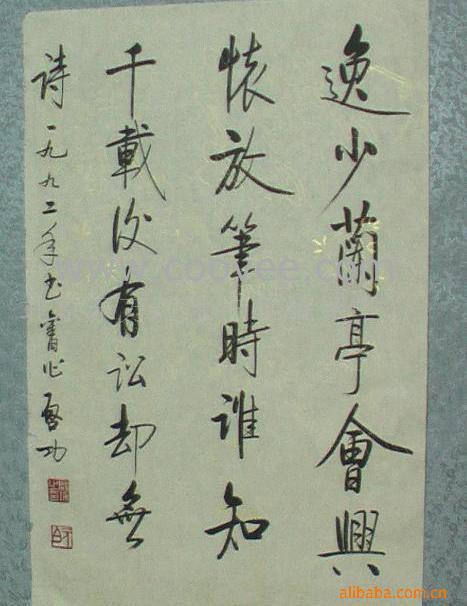 逸少蘭亭會興
懷放筆時誰知
千載後有訟却無
詩一九九二年書舊作啓功
www.cooyee.com
alibaba.com.cn